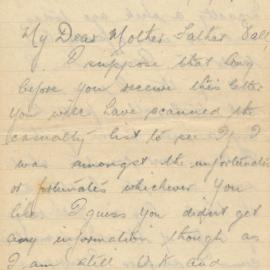 My Dear Mother Father & all
I suppose that long
before you receive this letter
you will have scanned the
casualty list to see if I
was amongst the unfortunates
or fortunates whichever you
like I guess you didn't get
any information though as
I am still O.K and